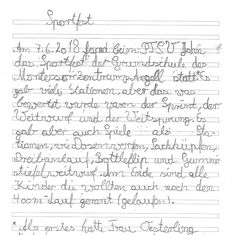 Sportfest
Am 7.6.2018 fand beim PTSV Jahn
das Sportfest der Grundschule des
Montessorizentrum Angell statt. Es
gab viele Stationen, aber das was
bewertet wurde waren der Sprint, der
Weitwurf und der Weitsprung. Es
gab aber auch Spiele als Sta-
tionen, wie Dosenwerfen, Sackhüpfen,
Dreibeinlauf, Bottleflip und Gummi
stiefelweitwurf. Am Ende sind alle
Kinder die wollten auch noch den
400m-Lauf gerannt (gelaufen).
* Als erstes hatte Frau Oesterling